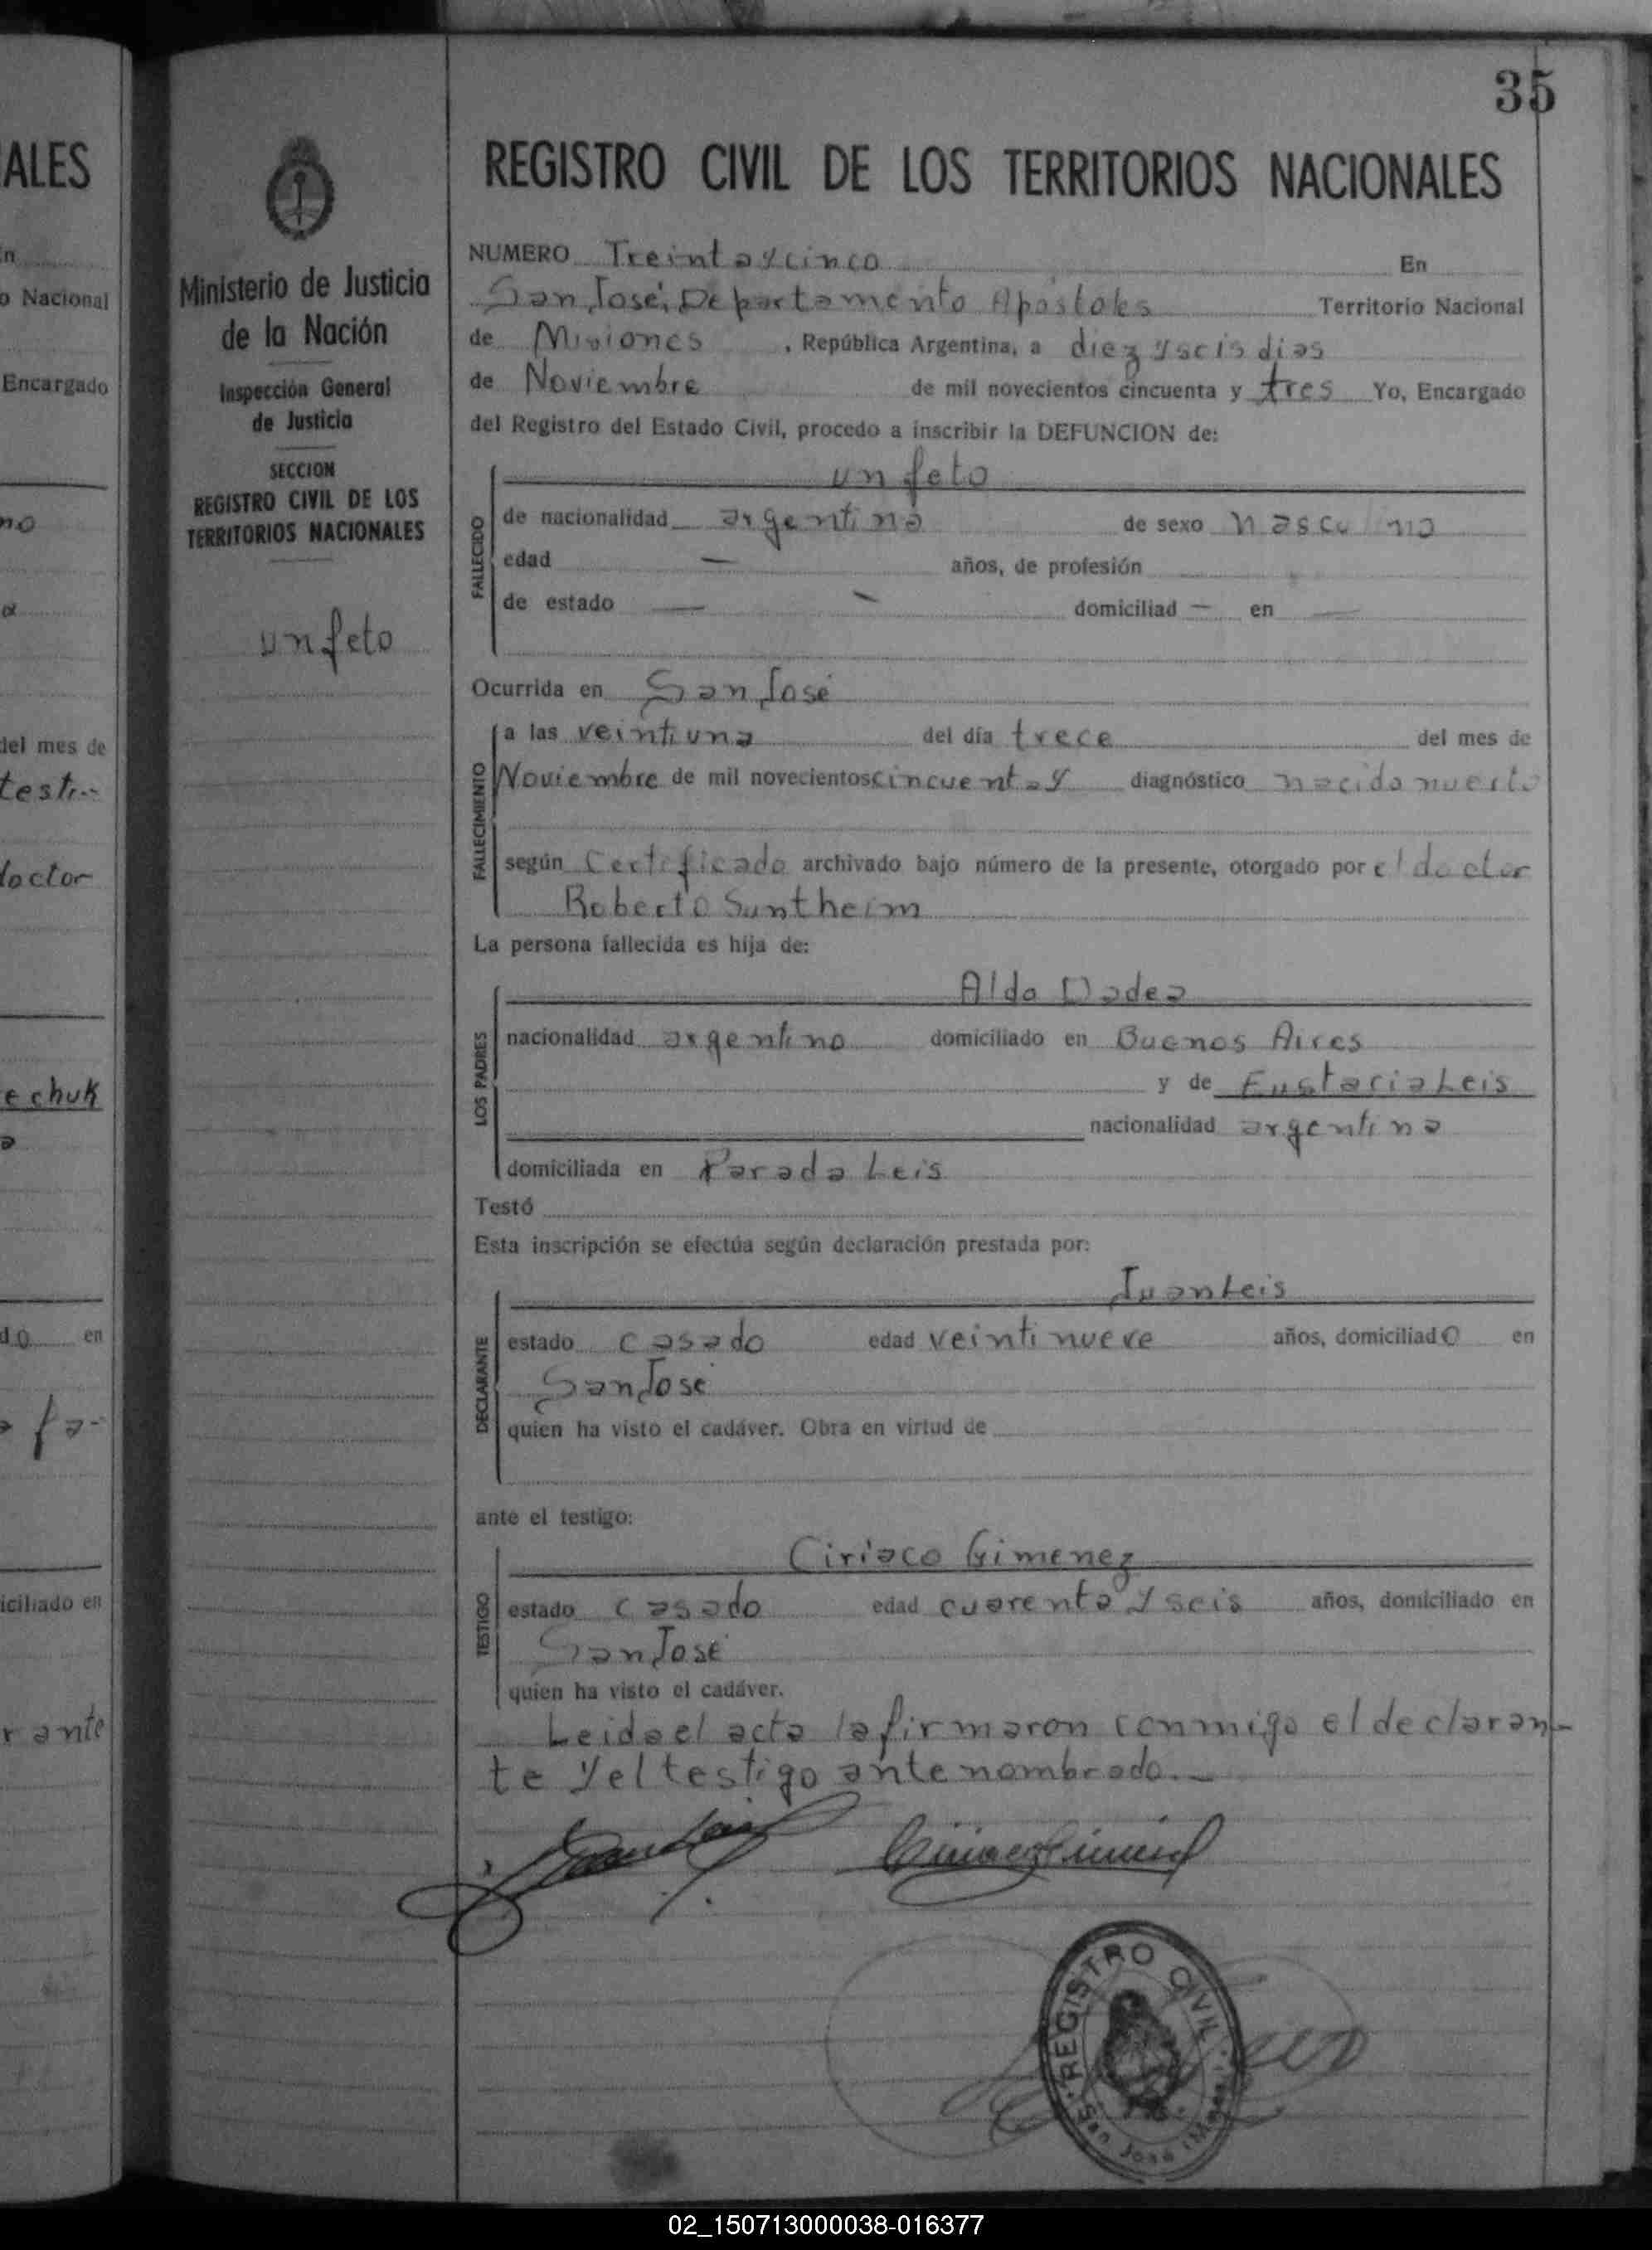 35
ALES
REGISTRO CIVIL DE LOS TERRITORIOS NACIONALES
Ministerio de Justicia
de la Nación
Inspección General
de Justicia
SECCION
REGISTRO CIVIL DE LOS
TERRITORIOS NACIONALES
un feto
NUMERO Treinta y cinco En
San José, Departamento Apóstoles Territorio Nacional
de Misiones, República Argentina, a diez y seis dias
de Noviembre de mil novecientos cincuenta y tres Yo, Encargado
del Registro del Estado Civil, procedo a inscribir la DEFUNCION de:
un feto
FALLECIDO
de nacionalidad argentina de sexo masculino
edad — años, de profesión
de estado — domiciliad — en —
Ocurrida en San José
FALLECIMIENTO
a las veintiuna del día trece del mes de
Noviembre de mil novecientos cincuenta y diagnóstico nacido muerto
según Certificado archivado bajo número de la presente, otorgado por el doctor
Roberto Suntheim
La persona fallecida es hija de:
LOS PADRES
Aldo Dadea
nacionalidad argentino domiciliado en Buenos Aires
y de Eustacia Leis
nacionalidad argentina
domiciliada en Parada Leis
Testó
Esta inscripción se efectúa según declaración prestada por:
DECLARANTE
Juan Leis
estado casado edad veintinueve años, domiciliado en
San José
quien ha visto el cadáver. Obra en virtud de
ante el testigo:
TESTIGO
Ciriaco Gimenez
estado casado edad cuarenta y seis años, domiciliado en
San José
quien ha visto el cadáver.
Leida el acta la firmaron conmigo el declaran-
te y el testigo antenombrado.—
REGISTRO CIVIL
San José (Mnes.)
n
o Nacional
Encargado
no
del mes de
testi-
doctor
echuk
a
do en
fa-
iciliado en
r ante
02_150713000038-016377